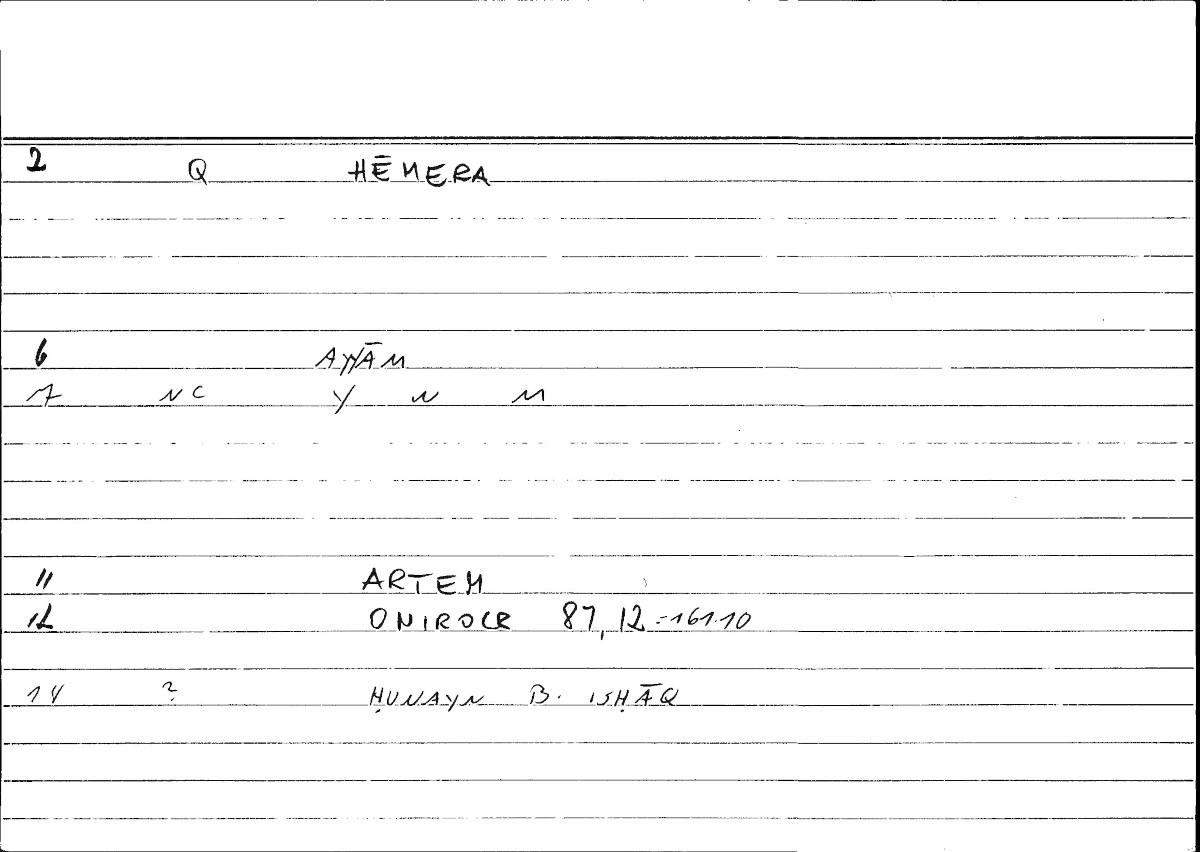 2 Q HĒMERA
6 AYYĀM
7 NC Y W M
11 ARTEM
12 ONIROCR 87,12 = 161.10
14 ? ḤUNAYN B. ISḤĀQ